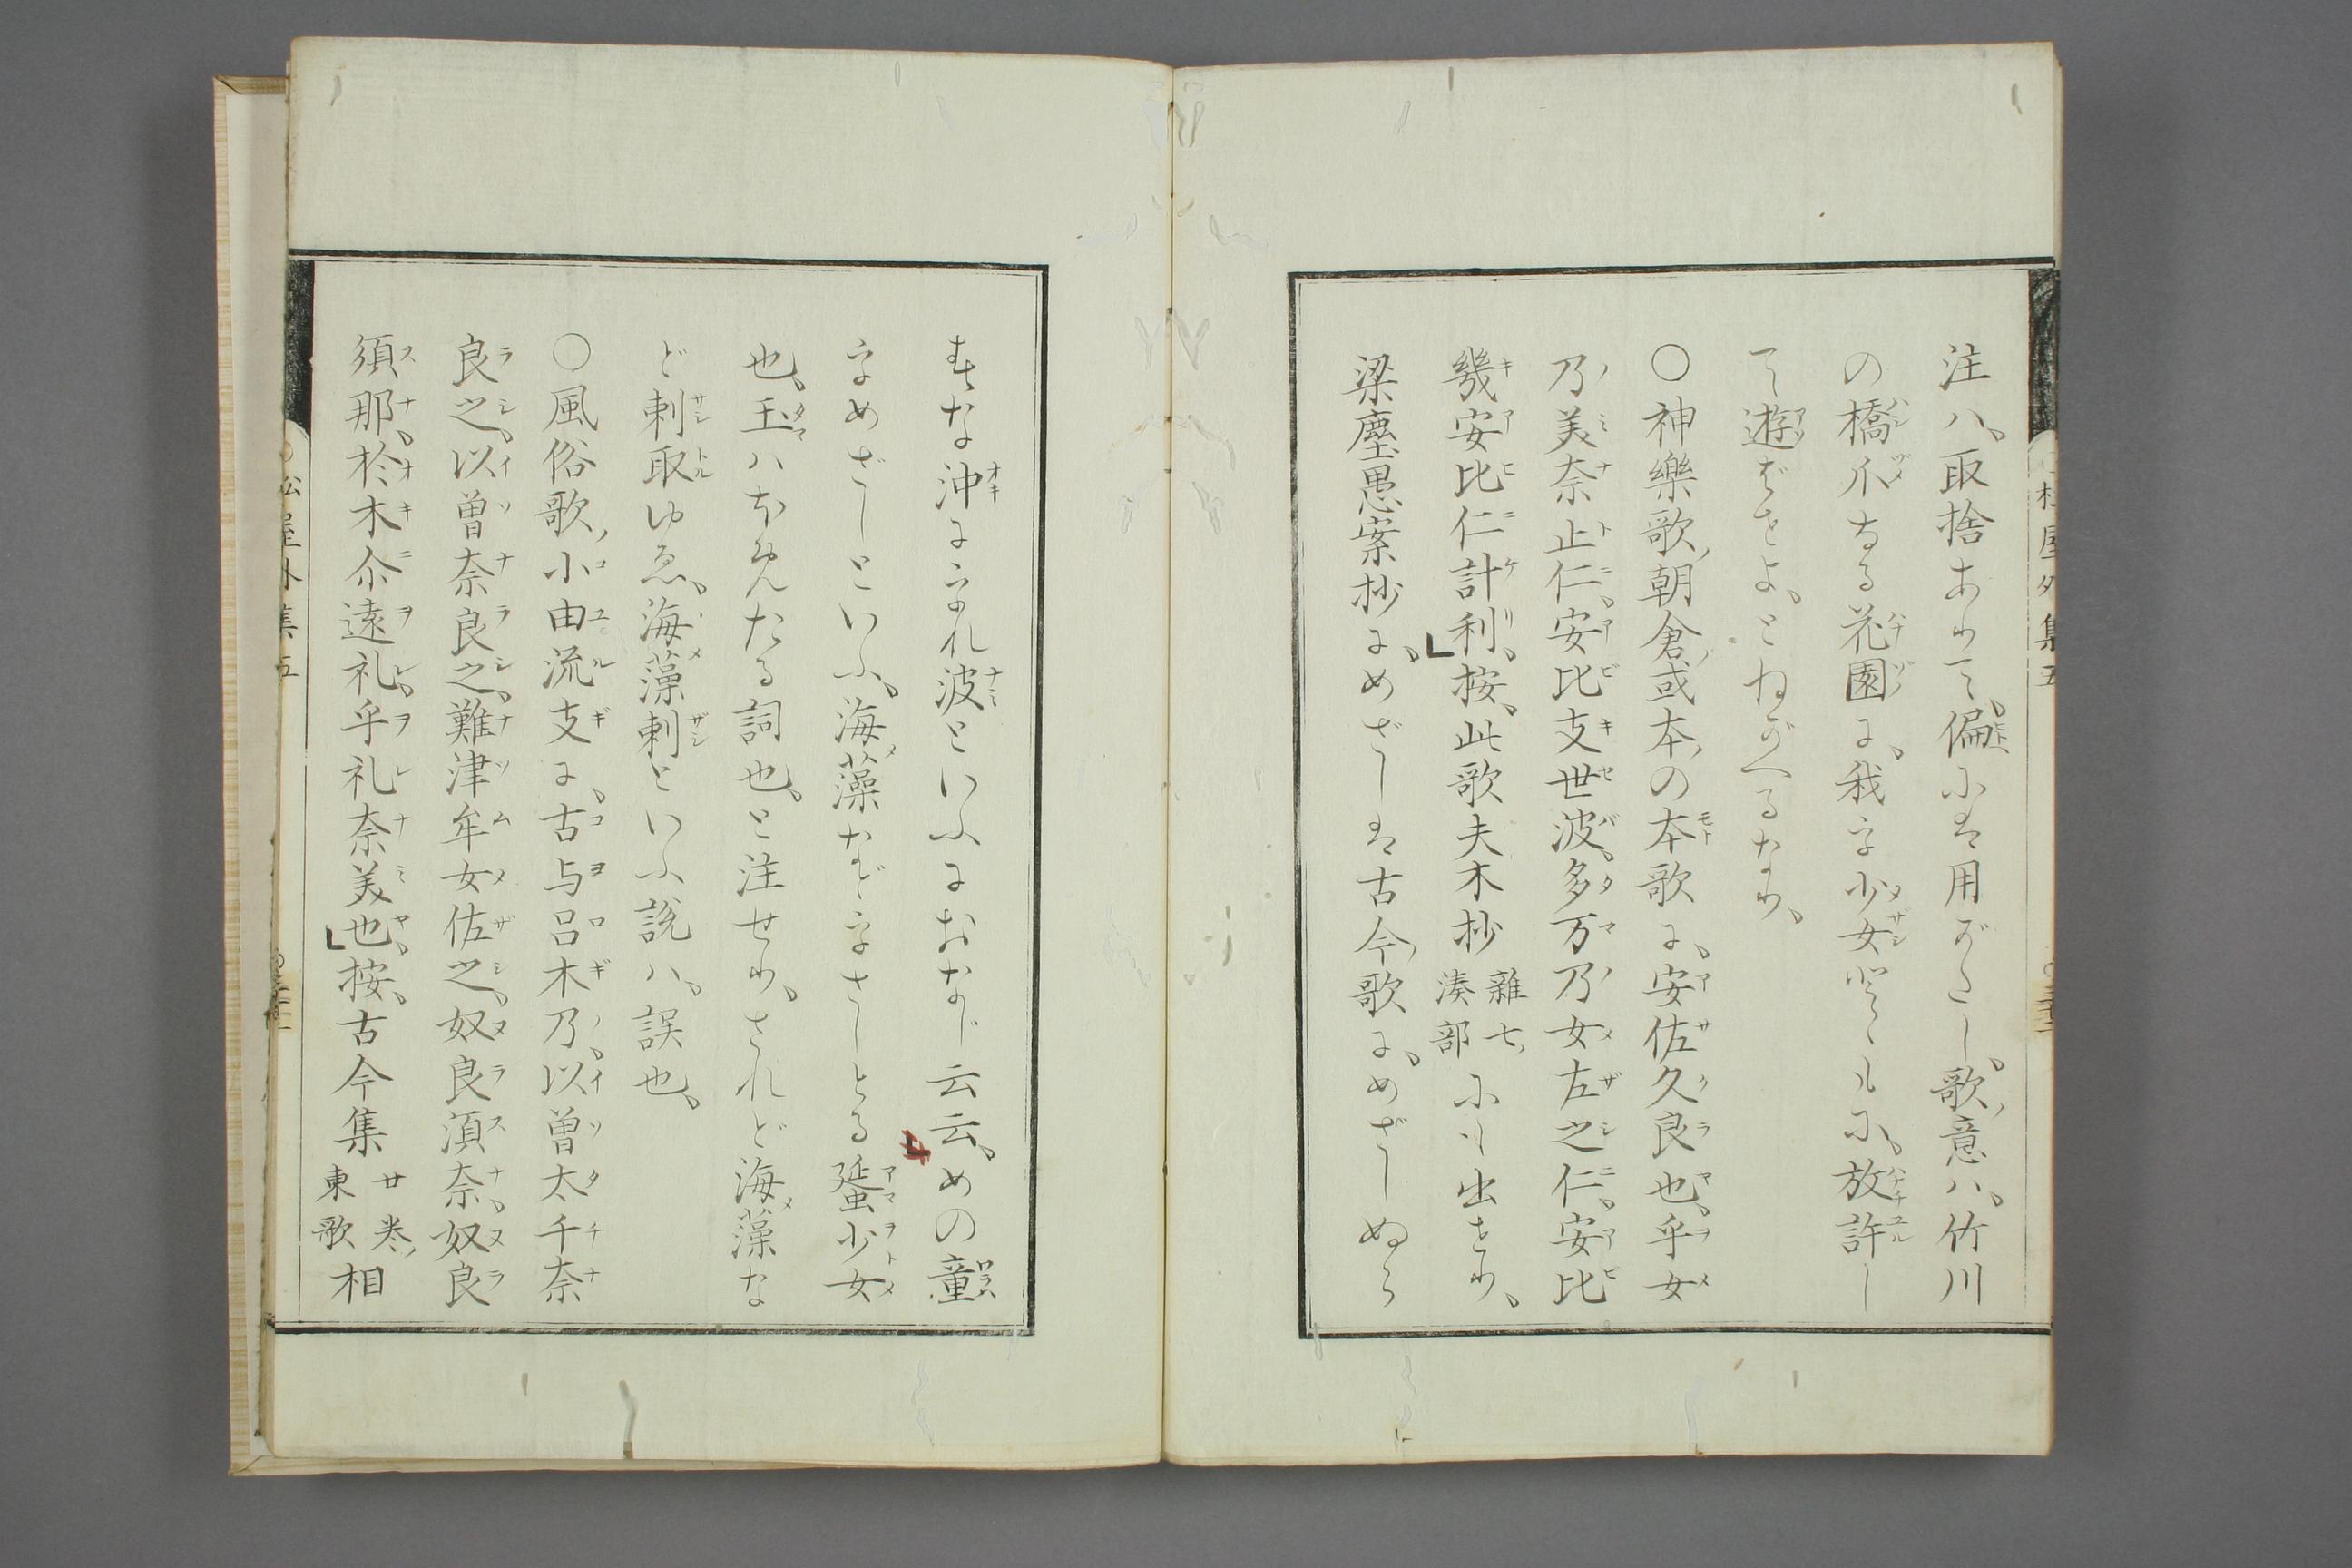 注ハ、取捨ありて、偏にハ用がたし。歌ノ意ハ、竹川
の橋爪なる花園に、我を少女どもに、放許し
て遊ばせよ、とねがへるなり、
○神樂歌ノ朝倉ノ或本ノの本歌に、安佐久良也、乎女
乃美奈止仁、安比支世波、多万乃女左之仁、安比
幾安比仁計利、」按、此歌夫木抄 雜七ノ湊部 にも出たり、
梁塵愚案抄に、めざしハ古今ノ歌に、めざしぬら
すな沖にをれ波といふにおなじ云云、」めの童
をめざしといふ、海藻などをさしとる蜑少女
也、玉ハほめたる詞也、と注せり、されど海藻な
ど刺取ゆゑ、海藻刺といふ説ハ、誤也、
○風俗歌ノ小由流支に、古与呂木乃、以曽太千奈
良之、以曽奈良之、難津牟女佐之、奴良須奈、奴良
須那、於木尒遠礼、乎礼奈美也、」按、古今集 廿巻ノ東歌 相
松屋外集五